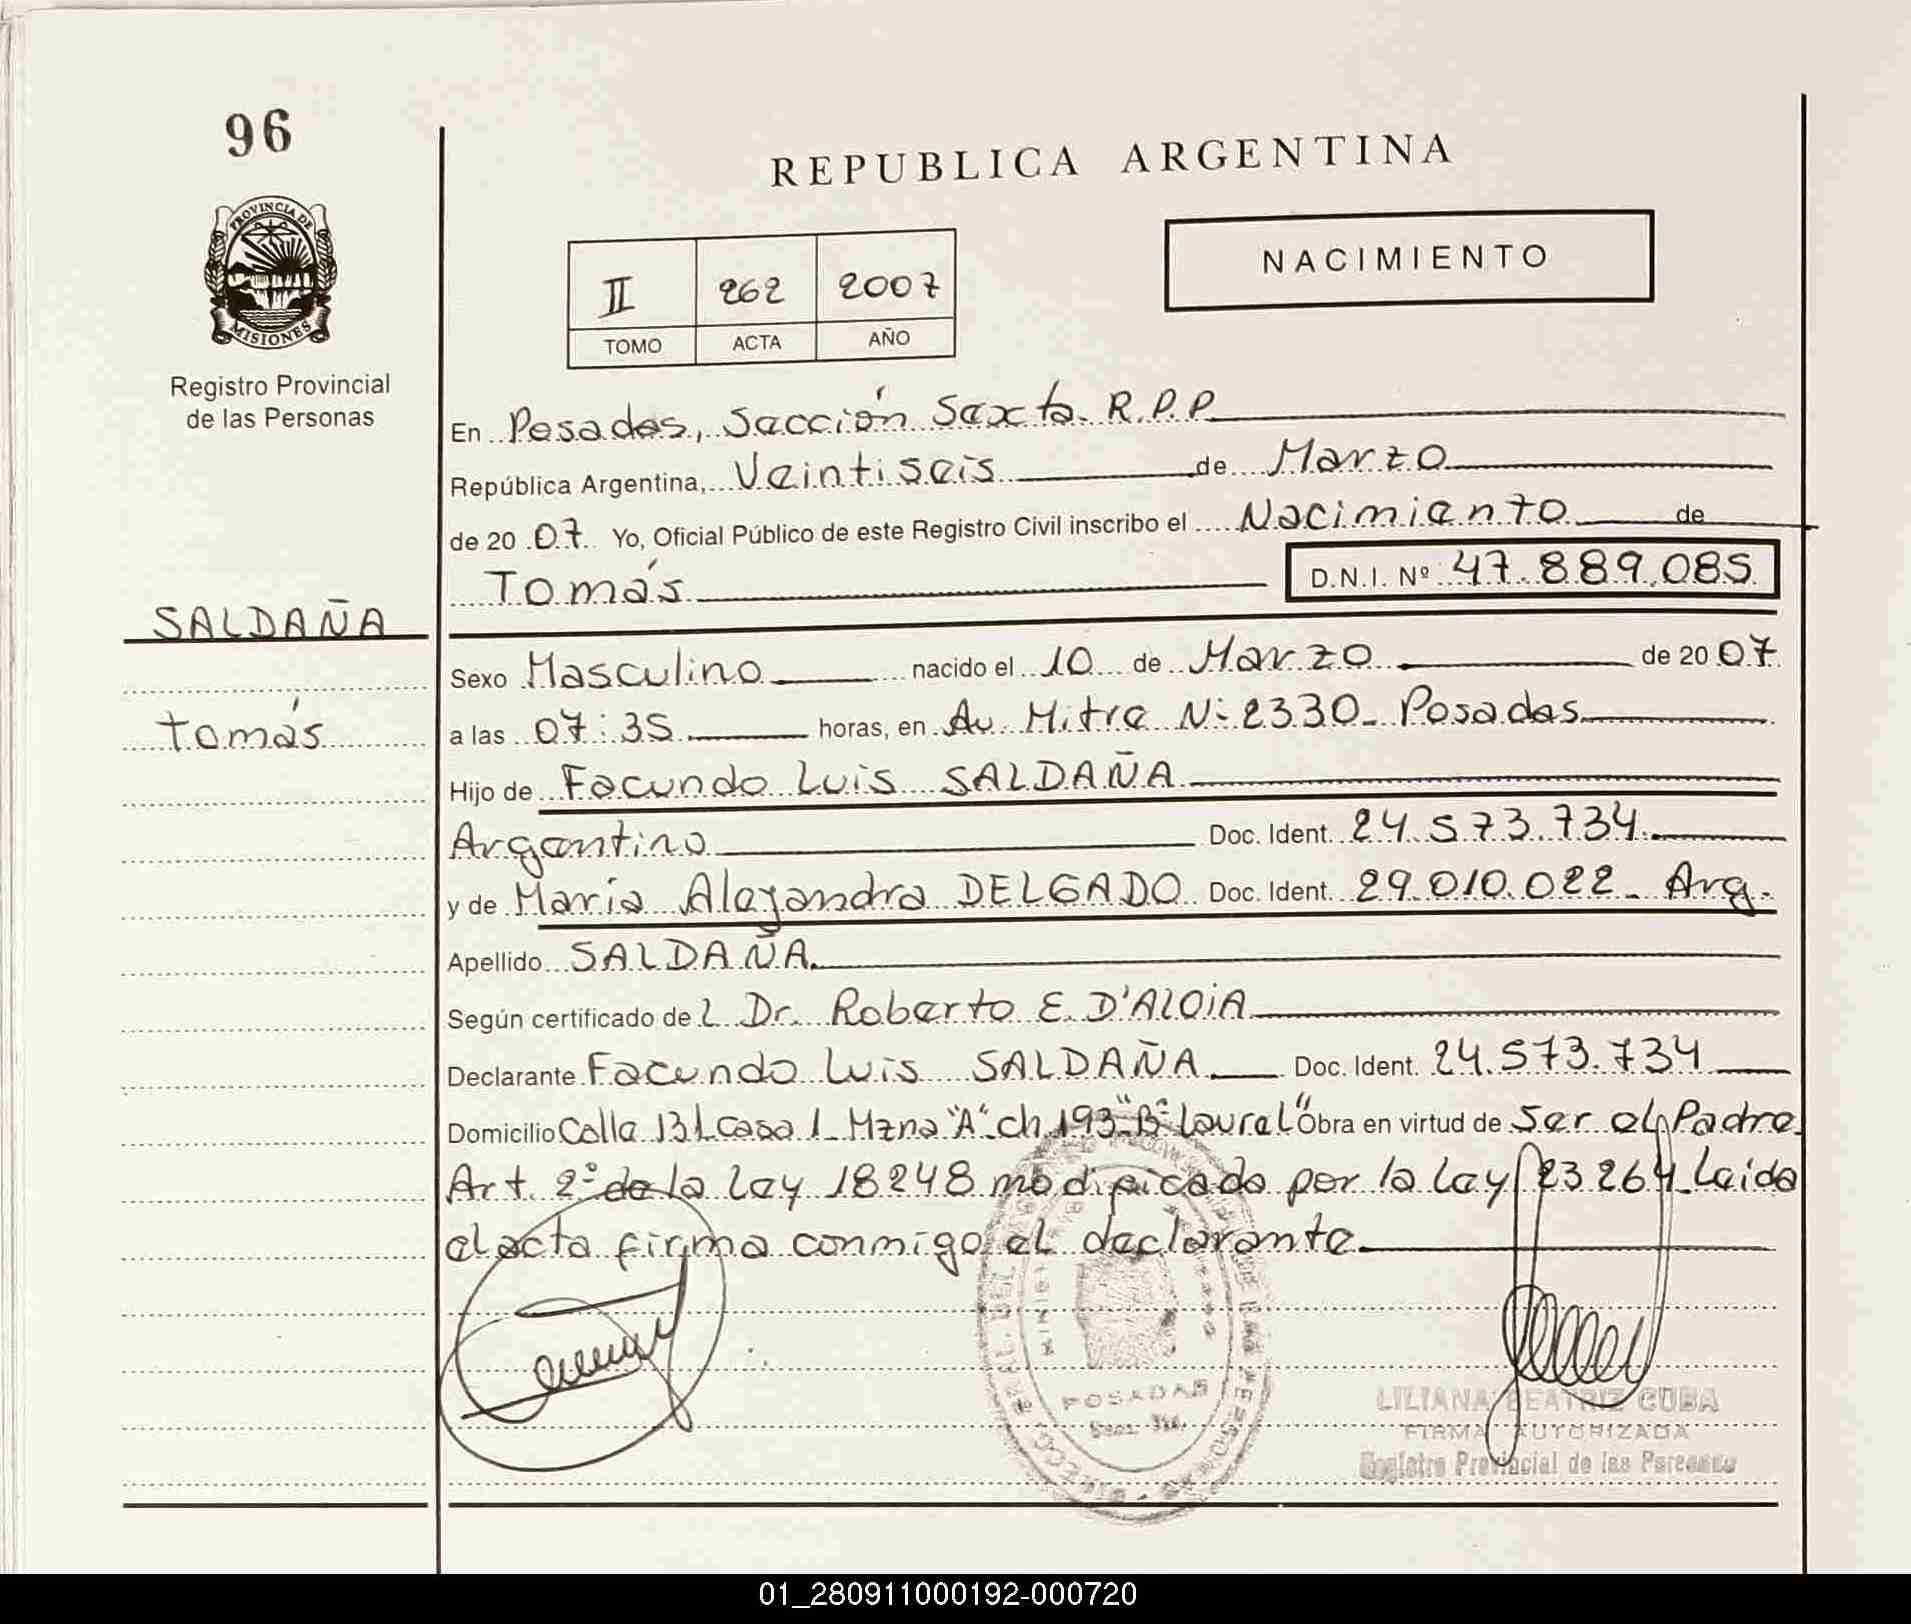 96
PROVINCIA DE
MISIONES
Registro Provincial
de las Personas
REPUBLICA ARGENTINA
II 262 2007
TOMO ACTA AÑO
NACIMIENTO
En Posadas, Sección Sexta R.P.P
República Argentina, Veintiseis de Marzo
de 20 07 Yo, Oficial Público de este Registro Civil inscribo el Nacimiento de
Tomás D.N.I. Nº 47.889.085
SALDAÑA
Tomás
Sexo Masculino nacido el 10 de Marzo de 20 07
a las 07:35 horas, en Av. Mitre Nº 2330_ Posadas
Hijo de Facundo Luis SALDAÑA
Argentino Doc. Ident. 24.573.734
y de María Alejandra DELGADO Doc. Ident. 29.010.022_ Arg.
Apellido SALDAÑA.
Según certificado de l Dr. Roberto E. D'ALOiA
Declarante Facundo Luis SALDAÑA Doc. Ident. 24.573.734
Domicilio Calle 131 casa 1 Mzna "A" ch 193 "B" Laurel" Obra en virtud de Ser el Padre.
Art. 2º de la Ley 18248 modificado por la Ley 23264_ Leida
el acta firma conmigo el declarante
POSADAS
LILIANA BEATRIZ CUBA
FIRMA AUTORIZADA
Registro Provincial de las Personas
01_280911000192-000720